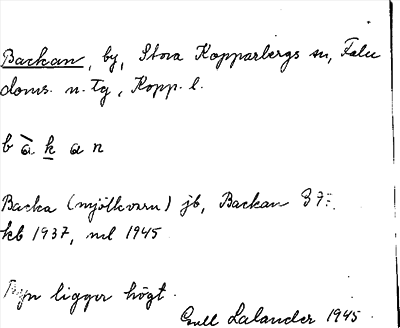 Backan, by, Stora Kopparbergs sn, Falu
doms. n. tg, Kopp. l.
b à k a n
Backa (mjölkvarn) jb, Backan
kb 1937, ml 1945
Byn ligger högt.
Gull Lalander 1945.